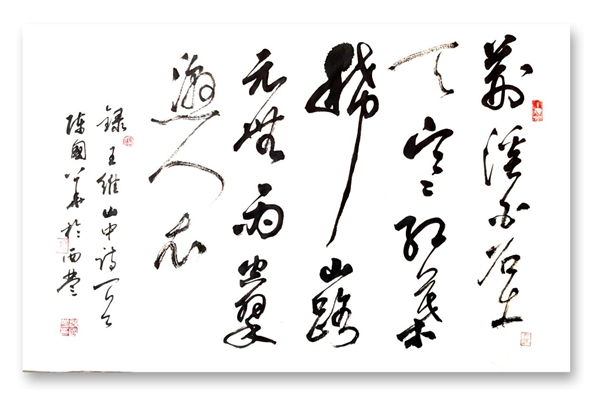 荆溪白石出
天寒紅葉
稀山路
元無雨空翠
濕人衣
録王維山中詩一首
陳國華於西